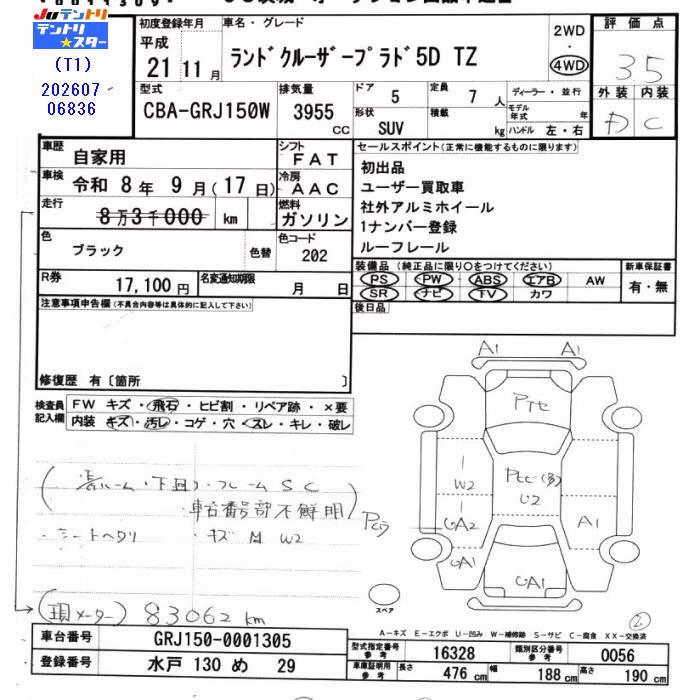 Juテントリ
テントリ★スター
(T1)
202607
06836
初度登録年月
平成
21 11 月
車名・グレード
ランドクルーザープラド5D TZ
2WD
・
4WD
評価点
35
外装 内装
D C
型式
CBA-GRJ150W
排気量
3955
CC
ドア
5
定員
7 人
形状
SUV
積載
kg
ディーラー・並行
モデル年式 年
ハンドル 左・右
車歴
自家用
シフト
FAT
車検
令和 8 年 9 月(17 日)
冷房
AAC
走行
8万3千000 km
燃料
ガソリン
色
ブラック
色替
色コード
202
R券
17,100円
名変通知期限
月 日
セールスポイント(正常に機能するものに限ります)
初出品
ユーザー買取車
社外アルミホイール
1ナンバー登録
ルーフレール
装備品(純正品に限り○をつけてください)
PS PW ABS エアB AW
SR ナビ TV カワ
新車保証書
有・無
後日品
注意事項申告欄(不具合内容等は具体的に記入して下さい)
修復歴 有〔箇所 〕
検査員記入欄
FW キズ・飛石・ヒビ割・リペア跡・×要
内装 キズ・汚レ・コゲ・穴・スレ・キレ・破レ
下回り・フレーム SC
・車台番号部不鮮明
・シートヘタリ ・キズ 凹 W2
A1 A1
Pтe
W2
U2
UA2
A1
UA1
UA1
スペア
2
(現メーター) 83062 km
A-キズ E-エクボ U-凹み W-補修跡 S-サビ C-腐食 XX-交換済
車台番号
GRJ150-0001305
登録番号
水戸 130 め 29
型式指定番号
参考
16328
類別区分番号
参考
0056
車庫証明用
参考
長さ 476 cm 幅 188 cm 高さ 190 cm